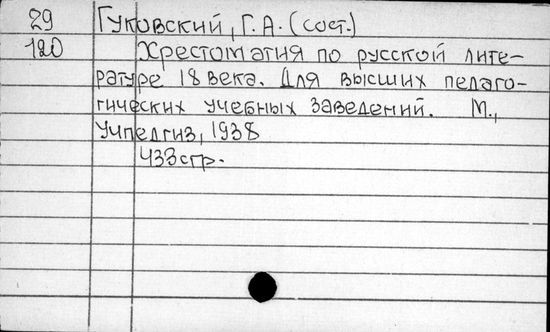 29 Гуковский, Г.А. (сост.)
120 Хрестоматия по русской лите-
ратуре 18 века. Для высших педаго-
гических учебных заведений. М.,
Учпедгиз, 1938
433 стр.